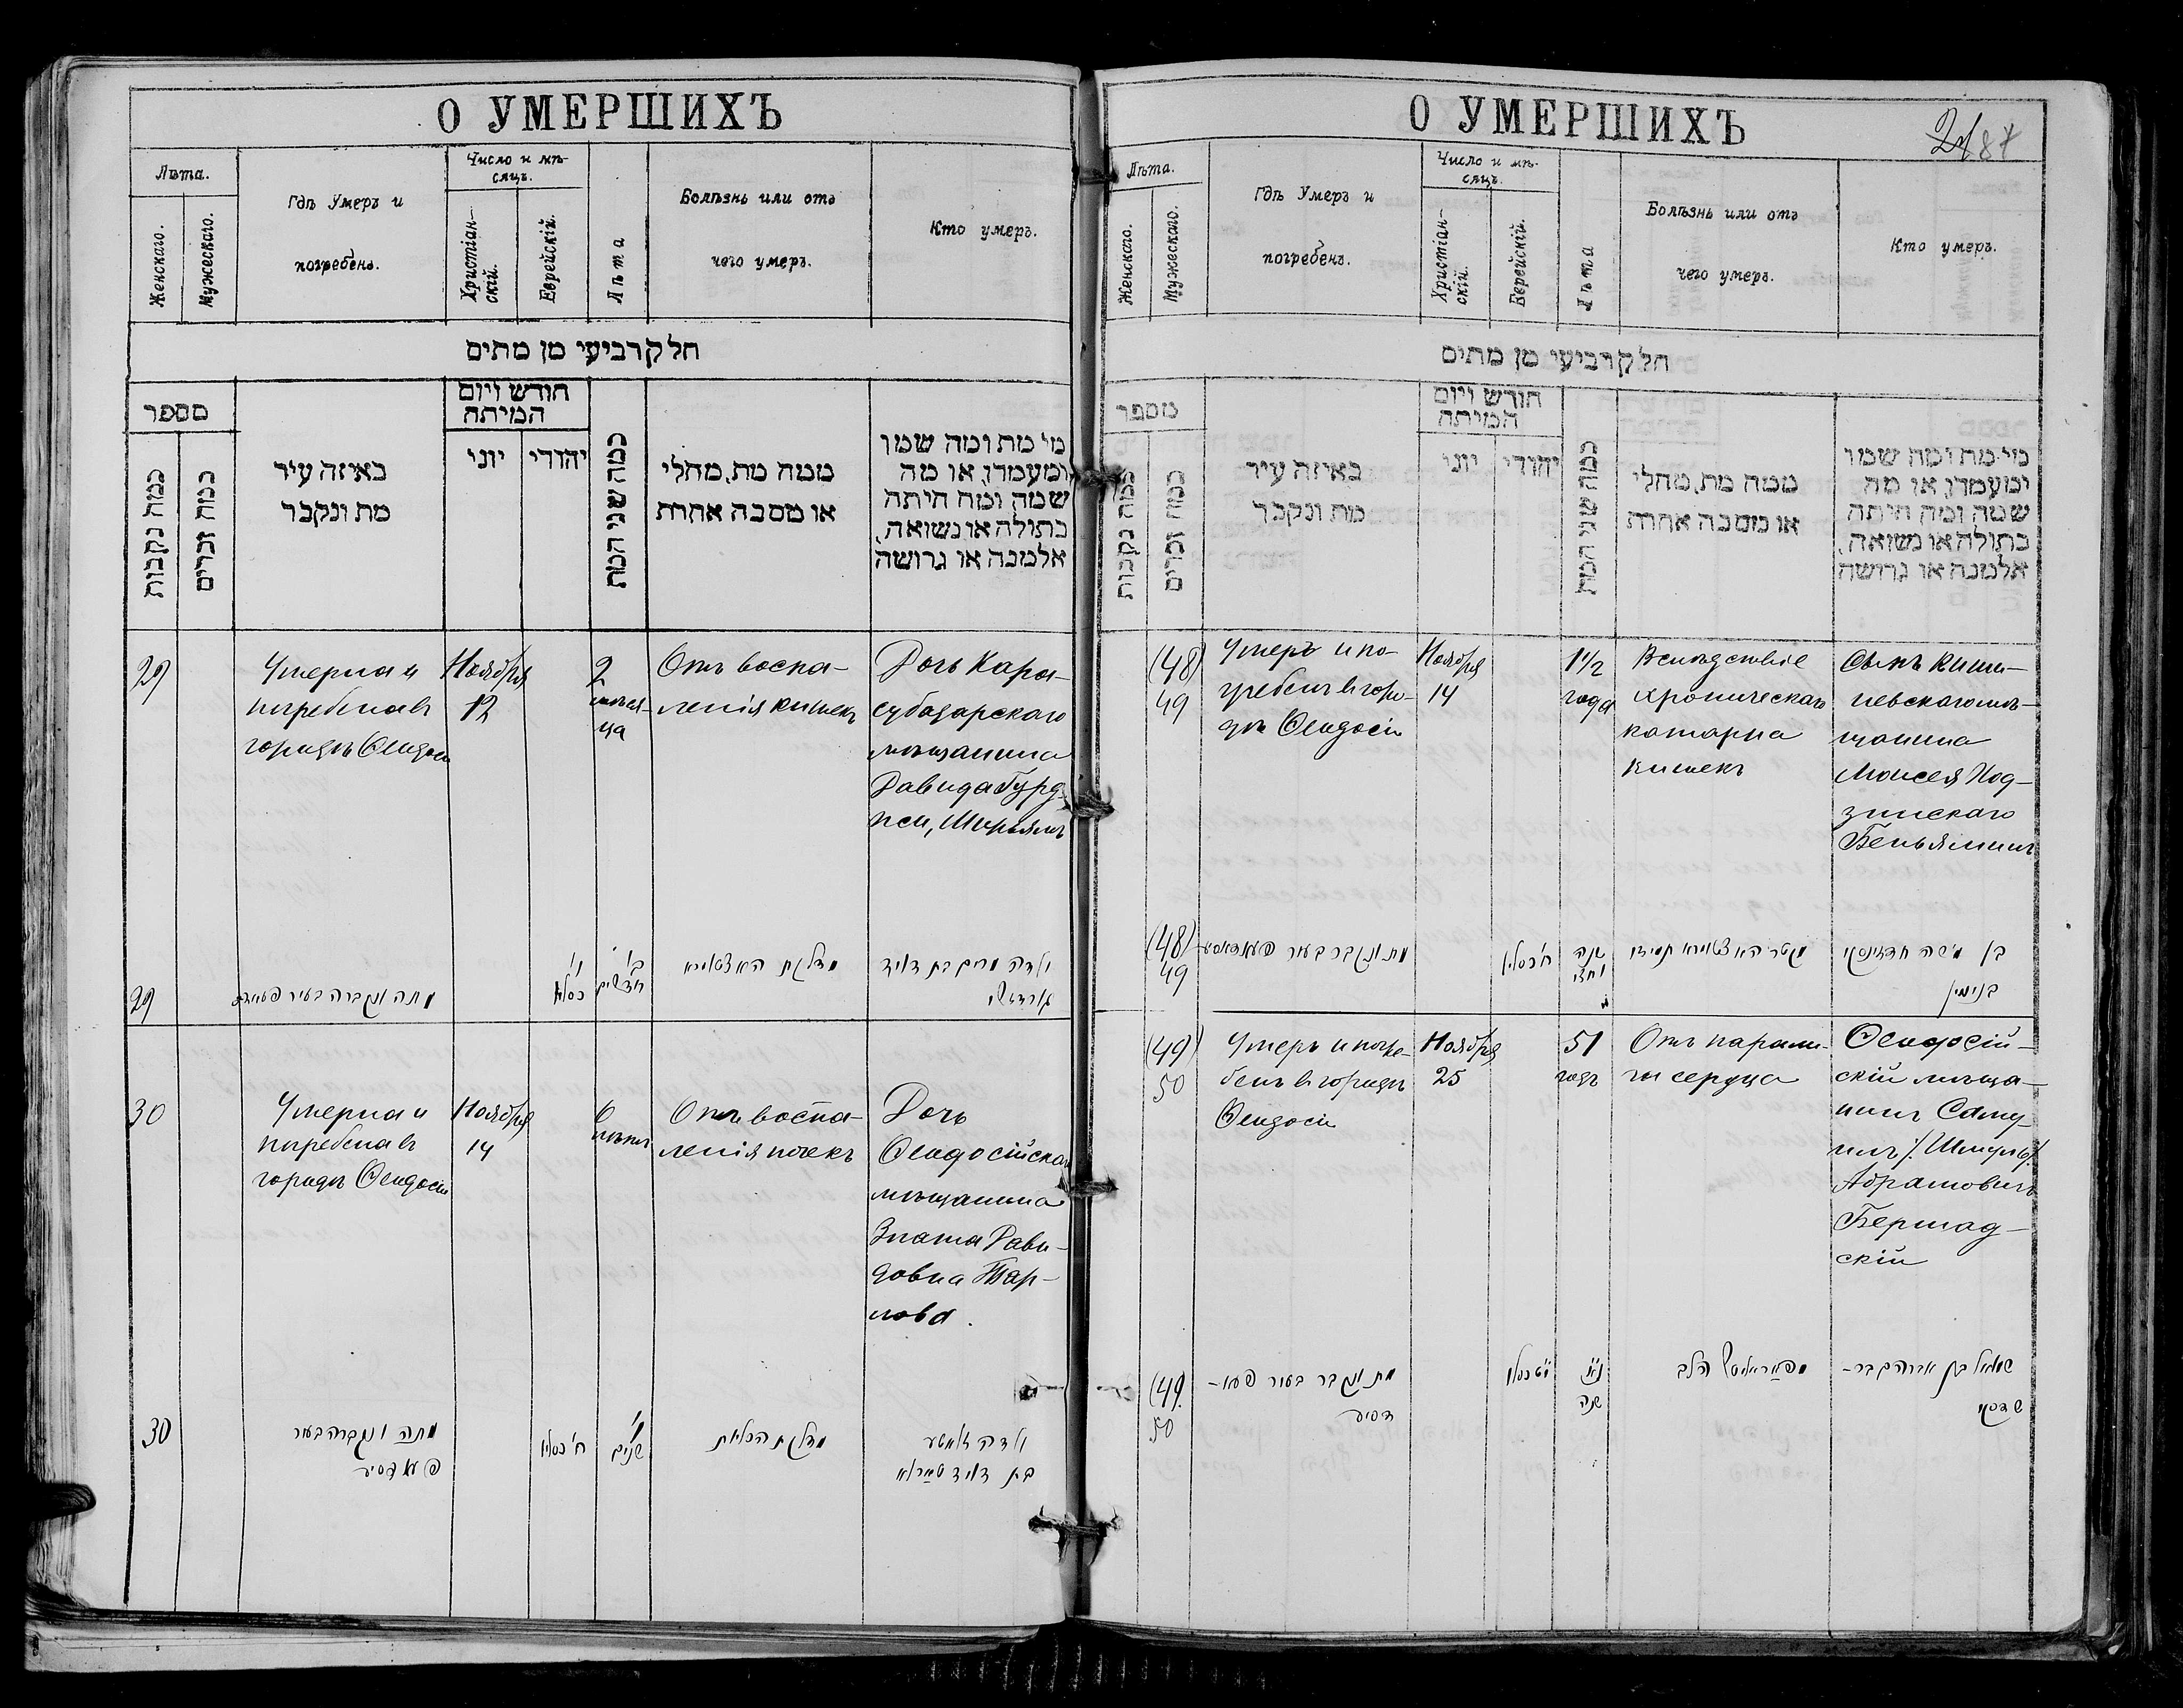 О УМЕРШИХЪ
Лѣта.
Женскаго.
Мужескаго.
Гдѣ Умеръ и
погребенъ.
Число и мѣ-
сяцъ.
Христіан-
скій.
Еврейскій.
Лѣта
Болѣзнь или отъ
чего умеръ.
Кто умеръ.
חלק רביעי מן מתים
מספר
כמה נקבות
כמה זכרים
באיזה עיר
מת ונקבר
חודש ויום
המיתה
יוני
יהודי
כמה שני המת
ממה מת, מחלי
או מסבה אחרת
מי מת ומה שמו
ומעמדו, או מה
שמה ומה היתה
בתולה או נשואה,
אלמנה או גרושה
29
Умерла и
погребена въ
городѣ Ѳеодосіи
Ноября
12
2
мѣся-
ца
Отъ воспа-
ленія кишекъ
Дочь Кара-
субазарскаго
мѣщанина
Давида Гурд-
жи, Мирьямъ
29
מתה ונקברה בעיר
ו׳
כסלו
ב׳
חדשים
מדלקת
ולדה מרים בת דויד
גורדזשי
30
Умерла и
погребена въ
городѣ Ѳеодосіи
Ноября
14
6
лѣтъ
Отъ воспа-
ленія почекъ
Дочь
Ѳеодосійскаго
мѣщанина
Злата Дави-
довна Тар-
лова.
30
מתה ונקברה בעיר
פעאדסיע
ח׳ כסלו
ו׳
שנים
מדלקת הכליות
ולדה זלאטע
בת דויד טארלא
О УМЕРШИХЪ
87
Лѣта.
Женскаго.
Мужескаго.
Гдѣ Умеръ и
погребенъ.
Число и мѣ-
сяцъ.
Христіан-
скій.
Еврейскій.
Лѣта
Болѣзнь или отъ
чего умеръ.
Кто умеръ.
חלק רביעי מן מתים
מספר
כמה נקבות
כמה זכרים
באיזה עיר
מת ונקבר
חודש ויום
המיתה
יוני
יהודי
כמה שני המת
ממה מת, מחלי
או מסבה אחרת
מי מת ומה שמו
ומעמדו, או מה
שמה ומה היתה
בתולה או נשואה,
אלמנה או גרושה
(48)
49
Умеръ и по-
гребенъ въ горо-
дѣ Ѳеодосіи
Ноября
14
1 1/2
года
Вслѣдствіе
хроническаго
катарра
кишекъ
Сынъ Киши-
невскаго мѣ-
щанина
Моисея Ход-
зинскаго
Беньяминъ
(48)
49
מת ונקבר בעיר
ח׳ כסלו
שנה
וחצי
בן משה חדזינסקי
בנימין
(49)
50
Умеръ и погре-
бенъ въ городѣ
Ѳеодосіи
Ноября
25
51
годъ
Отъ парали-
ча сердца
Ѳеодосій-
скій мѣща-
нинъ Саму-
илъ /: Шмуль :/
Абрамовичъ
Бершад-
скій
(49)
50
מת ונקבר בעיר פעא-
דסיע
י״ט כסלו
נ״א
שנה
הלב
שמואל בן אברהם בר-
שדסקי